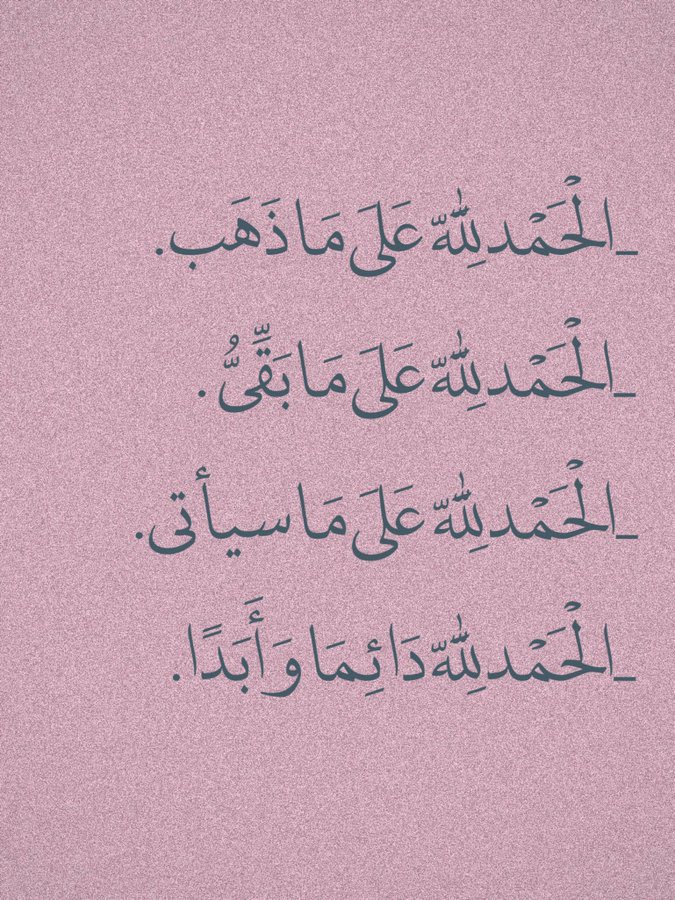 _الْحَمْد لِلَّهِ عَلَى مَا ذَهَب.
_الْحَمْد لِلَّهِ عَلَى مَا بَقِّىُّ .
_الْحَمْد لِلَّهِ عَلَى مَا سيأتى.
_الْحَمْد لِلَّهِ دَائِمَا وَأَبَدًا.